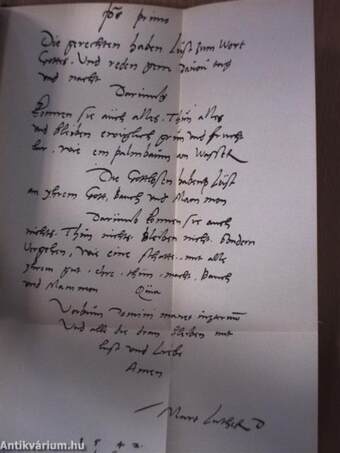 ps primus
Die gerechten haben Lust zum Wort
Gottes. Und reden gern dauon tag
vnd nacht
Darumb
konnen sie auch alles. Thun alles
vnd bleiben ewiglich grun und frucht
bar, wie ein palmbaum am Wasser
Die Gottlosen habens Lust
an yhrem Gott, Bauch und Mammon
Darumb konnen sie auch
nichts. Thun nichts. Bleiben nicht. sondern
Vergehen, wie eine schatte. mit alle
yhrem gut, ehre, thun, macht. Bauch
vnd Mammon Quia
Verbum Domini manet in eternum
Und alle die dran bleiben mit
lust und Liebe
Amen
Mart Luther D
1 5 4 2
Antikvárium.hu